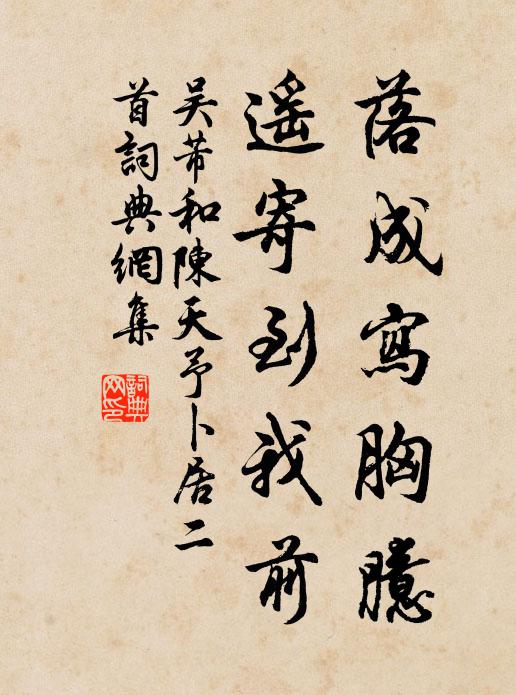 落成寫胸臆
遥寄到我前
吴芾和陳天予卜居二
首詞典網集
詞典
网印